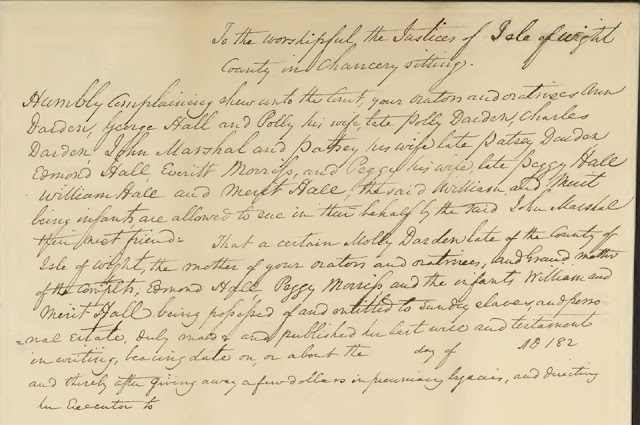 To the worshipful the Justices of Isle of Wight
County in Chancery sitting.
Humbly Complaining shews unto the Court, your orators and oratrixes Ann
Darden, George Hall and Polly his wife, late Polly Darden, Charles
Darden, John Marshal and Patsey his wife late Patsey Darden
Edmond Hall, Everitt Morriss, and Peggy his wife, late Peggy Hall
William Hall and Merit Hall, the said William, and Merit
being infants are allowed to sue in their behalf by the said John Marshal
their next friend: That a certain Molly Darden late of the County of
Isle of Wight, the mother of your orators and oratrixes, and Grand mother
of the complts, Edmond Hall Peggy Morriss and the infants William and
Merit Hall being possessed of and entitled to sundry slaves, and perso-
=nal estate, duly made and published her last will and testament
in writing, bearing date on, or about the day of AD 182
and thereby after giving away a few dollars in pecuniary legacies, and directing
her Executor to